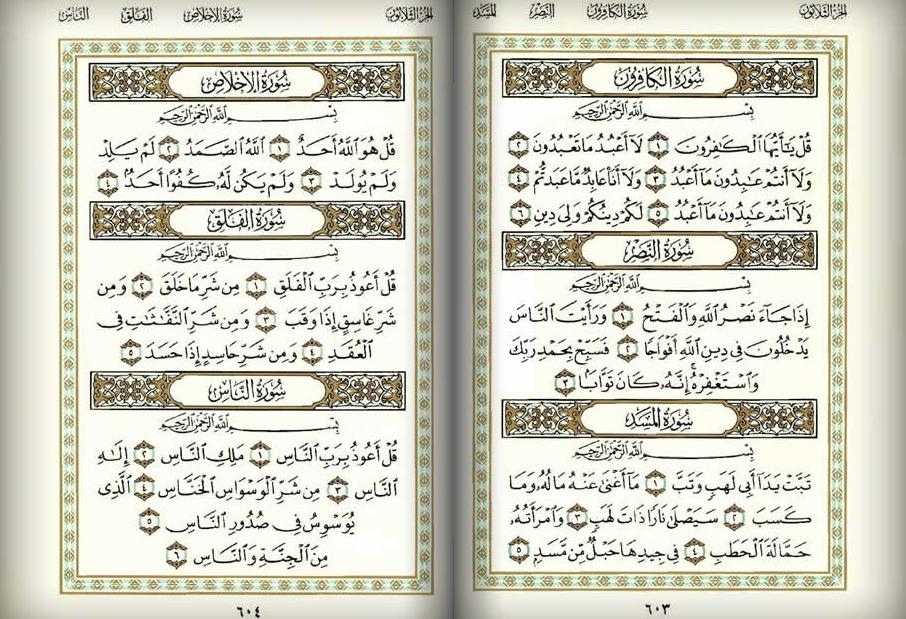 الجزء الثلاثون
سورة الكافرون
النصر
المسد
سُورَةُ الكَافِرُونَ
بِسْمِ اللَّهِ الرَّحْمَٰنِ الرَّحِيمِ
قُلْ يَٰٓأَيُّهَا ٱلْكَٰفِرُونَ ١ لَآ أَعْبُدُ مَا تَعْبُدُونَ ٢
وَلَآ أَنتُمْ عَٰبِدُونَ مَآ أَعْبُدُ ٣ وَلَآ أَنَا۠ عَابِدٌ مَّا عَبَدتُّمْ ٤
وَلَآ أَنتُمْ عَٰبِدُونَ مَآ أَعْبُدُ ٥ لَكُمْ دِينُكُمْ وَلِىَ دِينِ ٦
سُورَةُ النَّصْرِ
بِسْمِ اللَّهِ الرَّحْمَٰنِ الرَّحِيمِ
إِذَا جَآءَ نَصْرُ ٱللَّهِ وَٱلْفَتْحُ ١ وَرَأَيْتَ ٱلنَّاسَ
يَدْخُلُونَ فِى دِينِ ٱللَّهِ أَفْوَاجًا ٢ فَسَبِّحْ بِحَمْدِ رَبِّكَ
وَٱسْتَغْفِرْهُ ۚ إِنَّهُۥ كَانَ تَوَّابًۢا ٣
سُورَةُ المَسَدِ
بِسْمِ اللَّهِ الرَّحْمَٰنِ الرَّحِيمِ
تَبَّتْ يَدَآ أَبِى لَهَبٍ وَتَبَّ ١ مَآ أَغْنَىٰ عَنْهُ مَالُهُۥ وَمَا
كَسَبَ ٢ سَيَصْلَىٰ نَارًا ذَاتَ لَهَبٍ ٣ وَٱمْرَأَتُهُۥ
حَمَّالَةَ ٱلْحَطَبِ ٤ فِى جِيدِهَا حَبْلٌ مِّن مَّسَدٍۭ ٥
٦٠٣
الجزء الثلاثون
سورة الإخلاص
الفلق
الناس
سُورَةُ الإِخْلَاصِ
بِسْمِ اللَّهِ الرَّحْمَٰنِ الرَّحِيمِ
قُلْ هُوَ ٱللَّهُ أَحَدٌ ١ ٱللَّهُ ٱلصَّمَدُ ٢ لَمْ يَلِدْ
وَلَمْ يُولَدْ ٣ وَلَمْ يَكُن لَّهُۥ كُفُوًا أَحَدٌۢ ٤
سُورَةُ الفَلَقِ
بِسْمِ اللَّهِ الرَّحْمَٰنِ الرَّحِيمِ
قُلْ أَعُوذُ بِرَبِّ ٱلْفَلَقِ ١ مِن شَرِّ مَا خَلَقَ ٢ وَمِن
شَرِّ غَاسِقٍ إِذَا وَقَبَ ٣ وَمِن شَرِّ ٱلنَّفَّٰثَٰتِ فِى
ٱلْعُقَدِ ٤ وَمِن شَرِّ حَاسِدٍ إِذَا حَسَدَ ٥
سُورَةُ النَّاسِ
بِسْمِ اللَّهِ الرَّحْمَٰنِ الرَّحِيمِ
قُلْ أَعُوذُ بِرَبِّ ٱلنَّاسِ ١ مَلِكِ ٱلنَّاسِ ٢ إِلَٰهِ
ٱلنَّاسِ ٣ مِن شَرِّ ٱلْوَسْوَاسِ ٱلْخَنَّاسِ ٤ ٱلَّذِى
يُوَسْوِسُ فِى صُدُورِ ٱلنَّاسِ ٥
مِنَ ٱلْجِنَّةِ وَٱلنَّاسِ ٦
٦٠٤